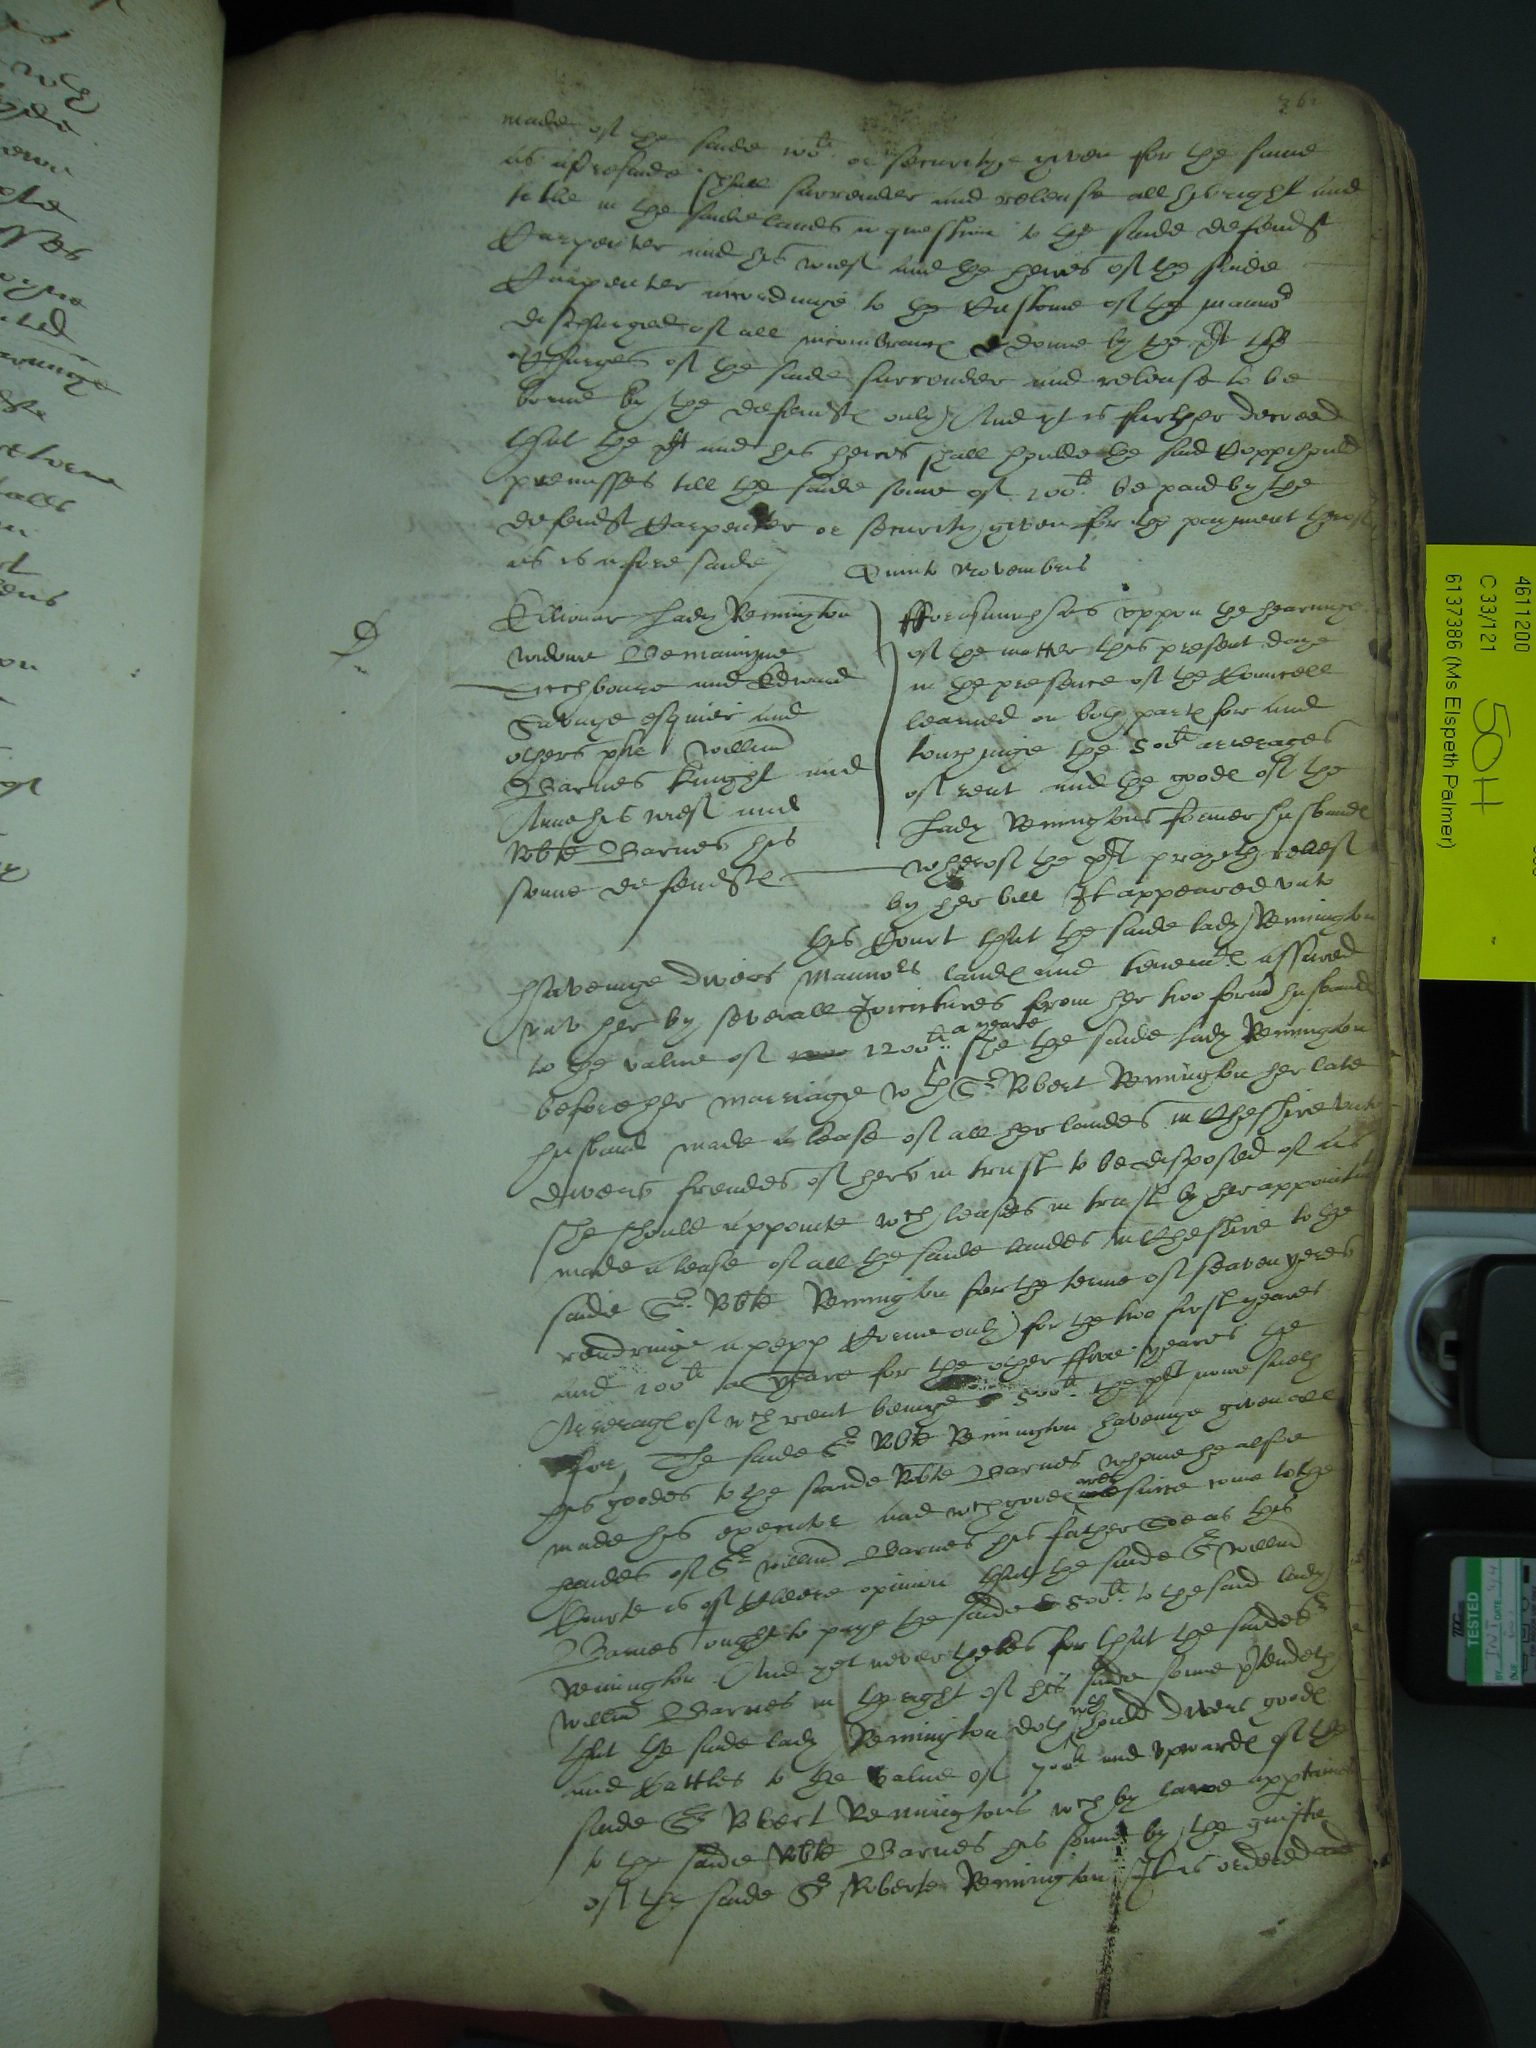 made of the saide 100li or securitye given for the same
as aforesaide shall surrender and release all his right and
title in the saide landes in question to the saide defendt
Carpenter and his wief and the heires of the saide
Carpenter accordinge to the Custome of the mannor
discharged of all incombrances donne by the plt the
Charges of the saide surrender and release to be
borne by the defendtes only And yt is further decreed
that the plt and his heires shall houlde the said Coppihould
premisses till the saide some of 100li be paid by the
defendt Carpenter or security given for the payment therof
as is aforesaide
Quinto Novembris
Ellionar Lady Remington
widowe
Litchborne and Edward
Savage esquier and
others plts Willm
Barnes knight and
Anne his wief and
Robte Barnes his
sonne defendtes
Forasmuch as uppon the hearinge
of the matter this present daye
in the presence of the Councell
learned on both partes for and
touchinge the 500li arrerages
of rent and the goodes of the
Lady Remingtons former husbande
wherof the plt prayeth relief
by her bill It appeared unto
this Court that the saide lady Remington
havenige divers Mannors landes and tenemtes assured
unto her by severall Joinctures from her two former husbandes
to the value of 1200li a yeare she the saide lady Remington
before her marriage wth Sr Robert Remington her late
husband made a lease of all her landes in Cheshire unto
divers frendes of hers in trust to be disposed of as
she should appointe wch leasees in trust by her appointmt
made a lease of all the saide landes in Cheshire to the
saide Sr Robte Remington for the terme of seaven yeres
rendringe a pepp Corne only for the two first yeares
and 100li a yeare for the other ffive yeares the
Arrerages of wch rent beinge 500li the plt nowe sueth
for, The saide Sr Robte Remington havenge given all
his goodes to the saide Robte Barnes whome he alsoe
made his executor and wch goodes are since come to the
handes of Sr Willm Barnes his father Soe as this
Courte is of Cleere opinion that the saide Sr Willm
Barnes ought to paye the saide 500li to the said lady
Remington And yet nevertheles for that the saide Sr
Willm Barnes in the right of his saide sonne ptendeth
that the saide lady Remington doth wthhould divers goodes
and Cattles to the value of 700li and upwardes of the
saide Sr Robert Remingtons wch by lawe apptaine
to the saide Robte Barnes his sonne by the guifte
of the saide Sr Roberte Remington It is ordered and
4611200
C 33/121
50H
6137386 (Ms Elspeth Palmer)
TESTED